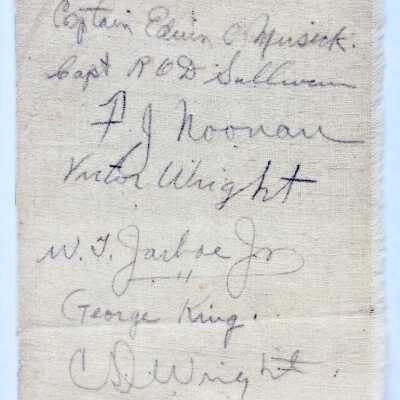 Captain Edwin C Musick.
Capt R O D Sullivan
F. J Noonan
Victor Wright
W. T. Jarboe Jr
George King.
C D Wright.